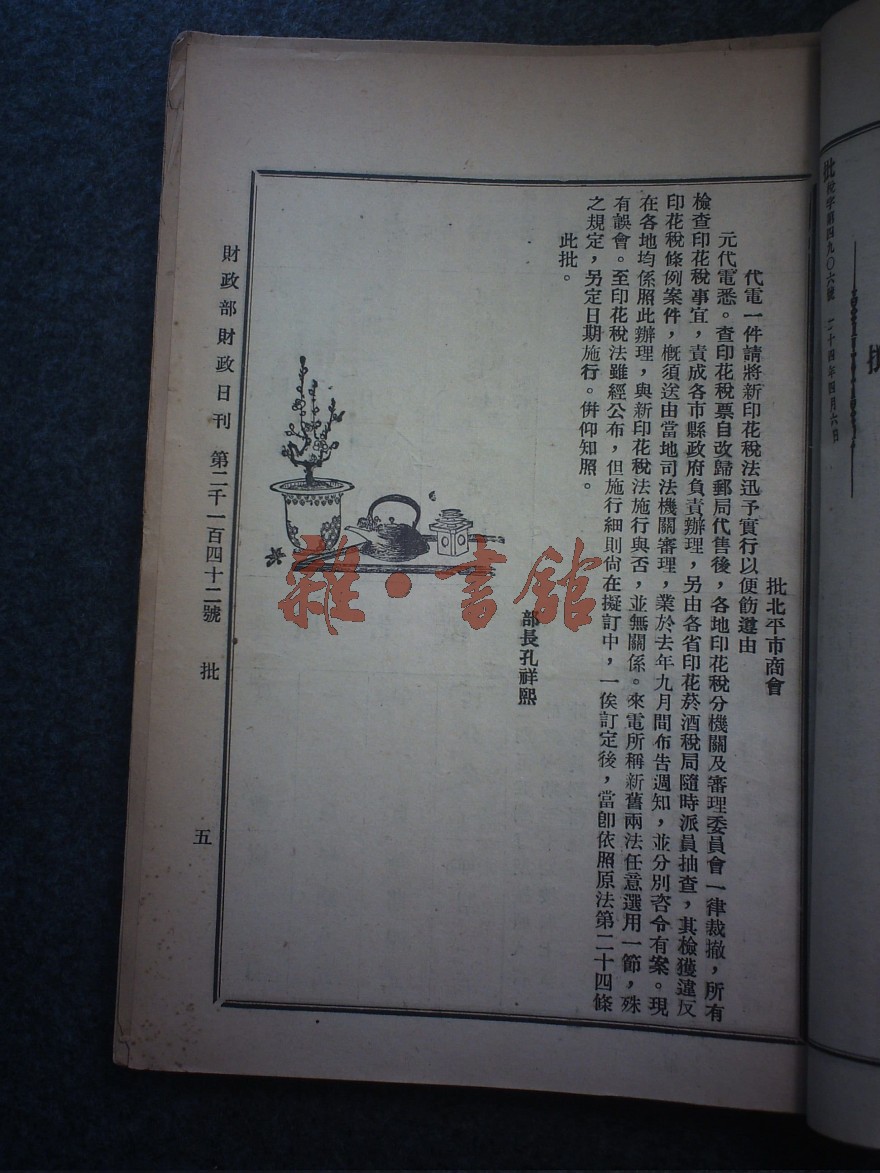 批稅字第四九〇六號　二十四年四月六日
批北平市商會
代電一件請將新印花稅法迅予實行以便飭遵由
元代電悉。查印花稅票自改歸郵局代售後，各地印花稅分機關及審理委員會一律裁撤，所有
檢查印花稅事宜，責成各市縣政府負責辦理，另由各省印花菸酒稅局隨時派員抽查，其檢獲違反
印花稅條例案件，槪須送由當地司法機關審理，業於去年九月間布告週知，並分別咨令有案。現
在各地均係照此辦理，與新印花稅法施行與否，並無關係。來電所稱新舊兩法任意選用一節，殊
有誤會。至印花稅法雖經公布，但施行細則尙在擬訂中，一俟訂定後，當卽依照原法第二十四條
之規定，另定日期施行。併仰知照。
此批。
部長孔祥熙
財政部財政日刊　第二千一百四十二號　批　五
雜·書館